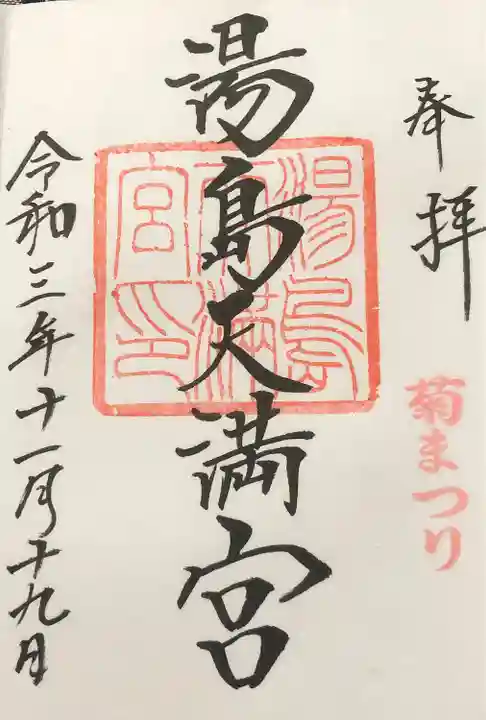 奉拝
菊まつり
湯島天満宮
湯島天満宮印
令和三年十一月十九日